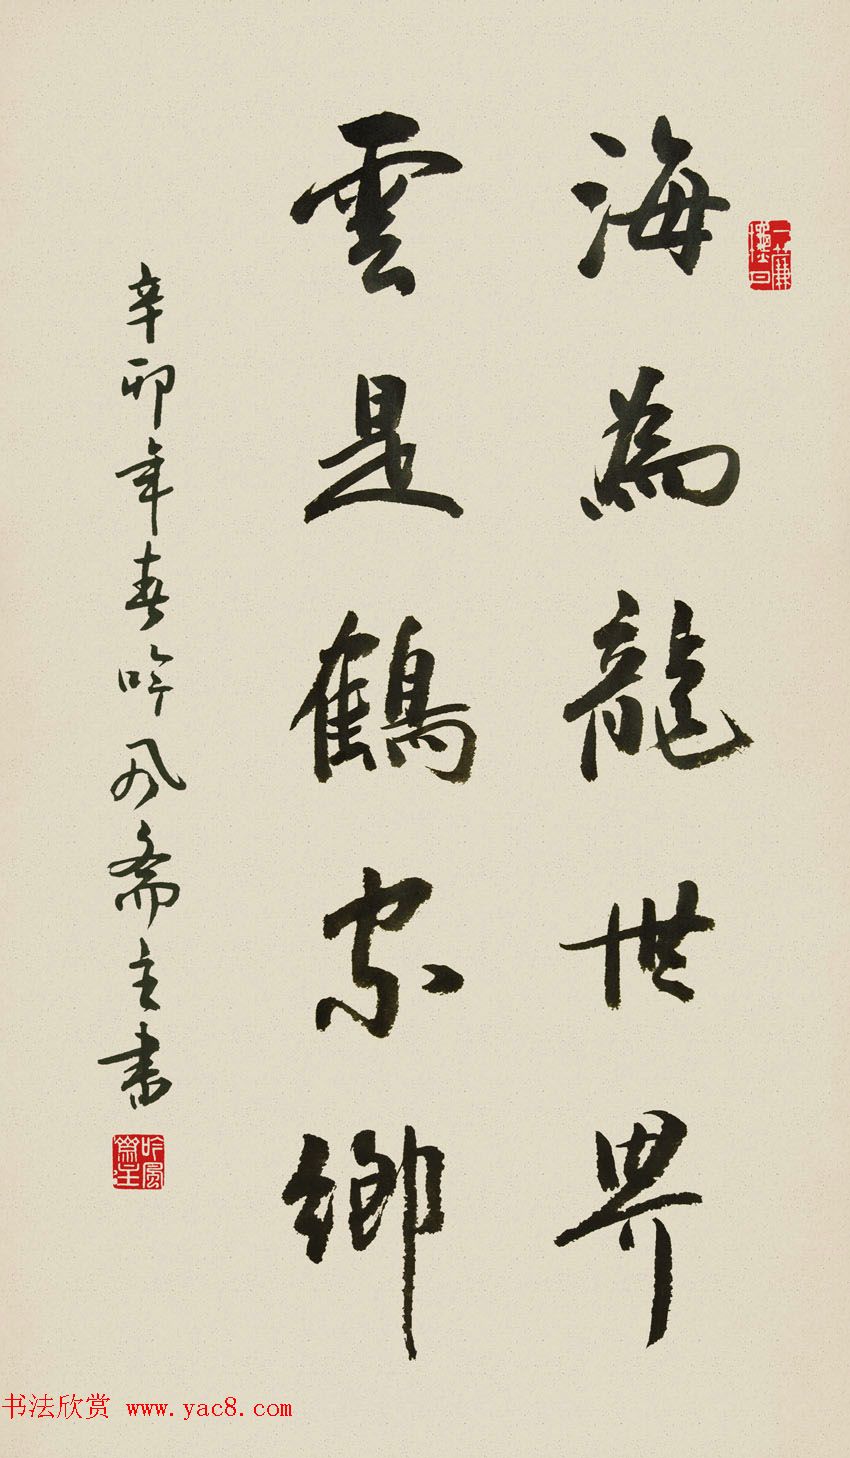 海為龍世界
雲是鶴家鄉
辛卯年春吟風斋主書
吟風齋主
书法欣赏 www.yac8.com